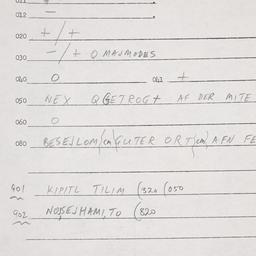 011 +
012 —
020 +/+
030 —/+ O MAJMODES
040 O 041 +
050 NEX Q GETROGT AF DER MITE
060 O
080 BESEJLOM(cn GUTER ORT)cn) AFN FE
901 KIPITL TILIM (320 (050
902 NOJSEJHAMI,TO (820